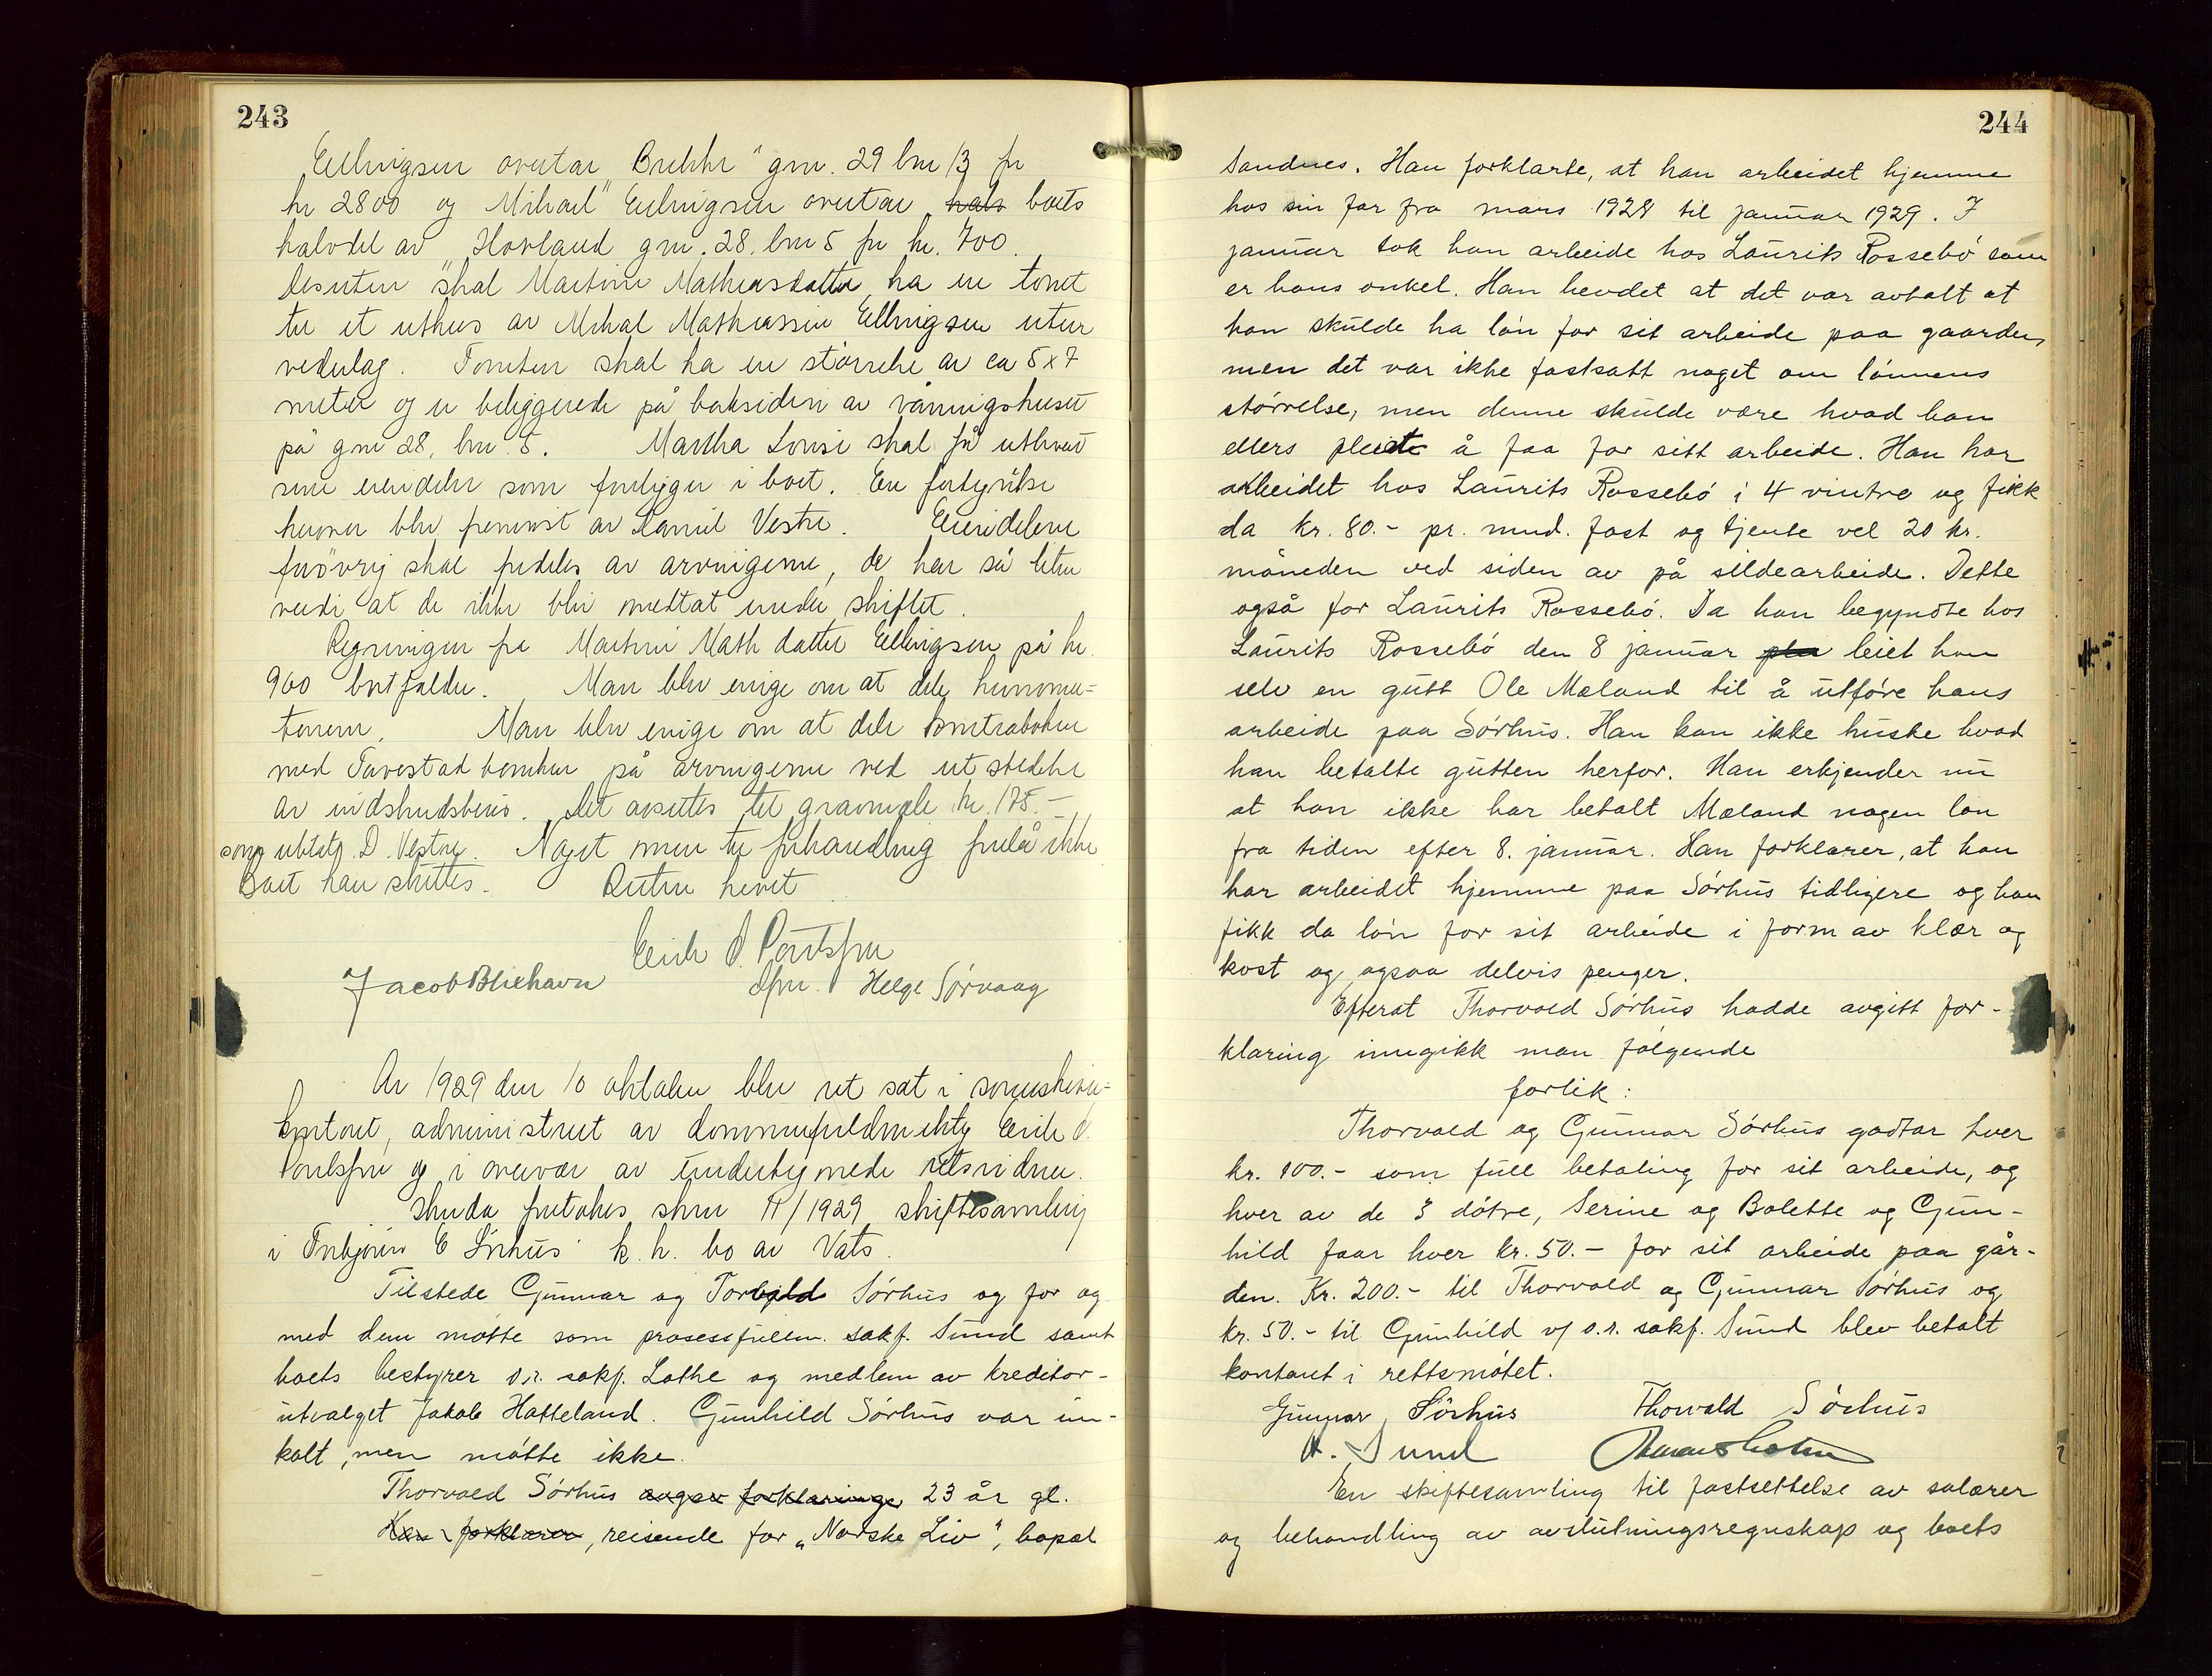 243
Ellingsen overtar "Brekke" gnr. 29 bnr 13 for
kr 2800 og Mikael Ellingsen overtar halv boets
halvdel av "Hovland gnr. 28. bnr 5 for kr. 700.
Desuten skal Martine Mathiasdatter ha en tomt
til et uthus av Mikal Mathiassen Ellingsen uten
vederlag. Tomten skal ha en størrelse av ca 5 x 7
meter og er beliggende på baksiden av våningshuset
på gnr 28, bnr. 5. Martha Lovise skal få utlevert
sine eiendeler som foreligger i boet. En fortegnelse
herover blev fremvist av Daniel Vestre. Eiendelene
forøvrig skal fordeles av arvingerne, de har så liten
verdi at de ikke blir medtat under skiftet.
Regningen fra Martine Math datter Ellingsen på kr.
900 bortfalder. Man blev enige om at dele
Man blev enige om at dele kontraboken
med Tuvestad banken på arvingerne ved utstedelse
av indskudsbevis. Det avsettes til gravmæle kr. 175.-
som utbetg. D. Vestre. Noget mere til forhandling forelå ikke
Boet kan sluttes. Retten hevet
Eirik D. Poulsson
Jacob Bliehavn
dfm. Helge Sørvaag
År 1929 den 10 oktober blev ret sat i sorenskriver-
kontoret, administreret av dommerfuldmektig Eirik D.
Poulsson og i overvær av undertegnede retsvidner.
Da foretokes skm 11/1929 skiftesamling
i Torbjørn E Sørhus k. h. bo av Vats.
Tilstede Gunnar og Torvald Sørhus og for og
med dem møtte som prosessfullm. sakf. Sund samt
boets bestyrer o.r. sakf. Lothe og medlem av kreditor-
utvalget Jakob Hatteland. Gunhild Sørhus var inn-
kalt, men møtte ikke.
Thorvald Sørhus avgav forklaringe 23 år gl.
Han forklarer, reisende for "Norske Liv", bopæl
244
Sandnes. Han forklarte, at han arbeidet hjemme
hos sin far fra mars 1928 til januar 1929. I
januar tok han arbeide hos Laurits Rossebø som
er hans onkel. Han hevdet at det var avtalt at
han skulde ha løn for sit arbeide paa gaarden,
men det var ikke fastsatt noget om lønnens
størrelse, men denne skulde være hvad han
ellers pleiete å faa for sitt arbeide. Han har
arbeidet hos Laurits Rossebø i 4 vintre og fikk
da kr. 80.- pr. mnd. fast og tjente vel 20 kr.
måneden ved siden av på sildearbeide. Dette
også for Laurits Rossebø. Da han begyndte hos
Laurits Rossebø den 8 januar ple leiet han
selv en gutt Ole Mæland til å utføre hans
arbeide paa Sørhus. Han kan ikke huske hvad
han betalte gutten herfor. Han erkjender nu
at han ikke har betalt Mæland nogen løn
fra tiden efter 8. januar. Han forklarer, at han
har arbeidet hjemme paa Sørhus tidligere og han
fikk da løn for sit arbeide i form av klær og
kost og ogsaa delvis penger.
Efterat Thorvald Sørhus hadde avgitt for-
klaring inngikk man følgende
forlik:
Thorvald og Gunnar Sørhus godtar hver
kr. 100.- som full betaling for sit arbeide, og
hver av de 3 døtre, Serine og Bolette og Gun-
hild faar hver kr. 50.- for sit arbeide paa går-
den. Kr. 200.- til Thorvald og Gunnar Sørhus og
kr. 50.- til Gunhild v/ o.r. sakf. Sund blev betalt
kontant i rettsmøtet.
Gunnar Sørhus Thorvald Sørhus
A. Sund
En skiftesamling til fastsettelse av salærer
og behandling av avslutningsregnskap og boets